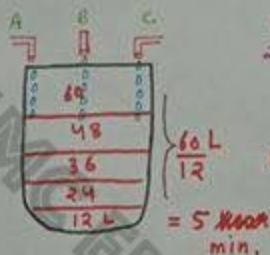 A B C
60
48
36
24
12 L
60 L
12
= 5
min.